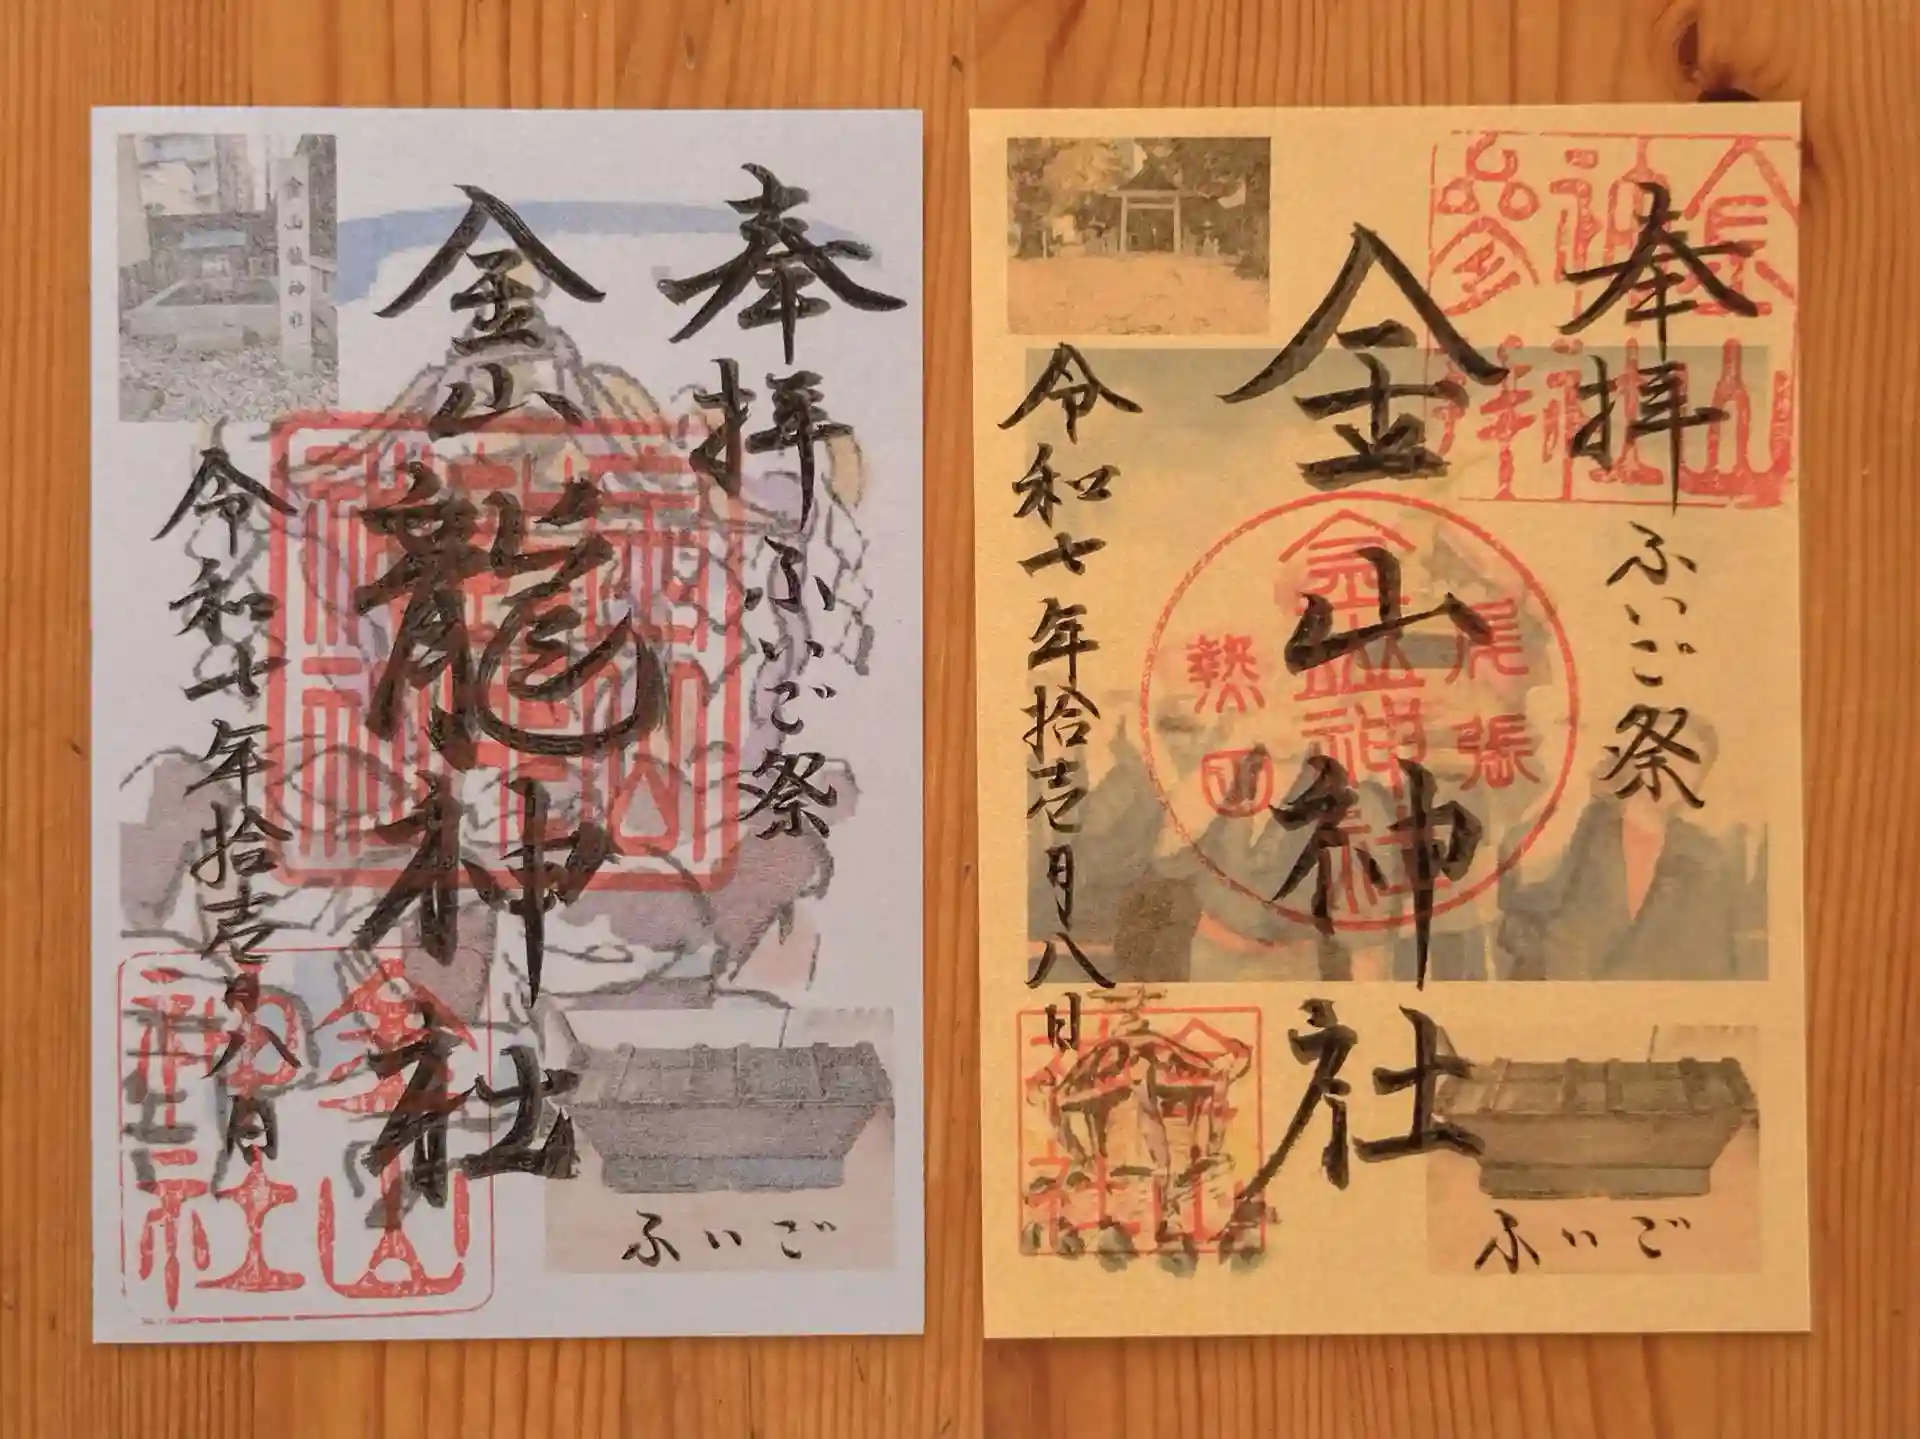 奉拝 ふいご祭
金山龍神社
令和七年拾壱月八日
金山龍神社
金山神社
ふいご
奉拝 ふいご祭
金山神社
令和七年拾壱月八日
金山神社参拝
尾張
金山神社
熱田
金山神社
ふいご